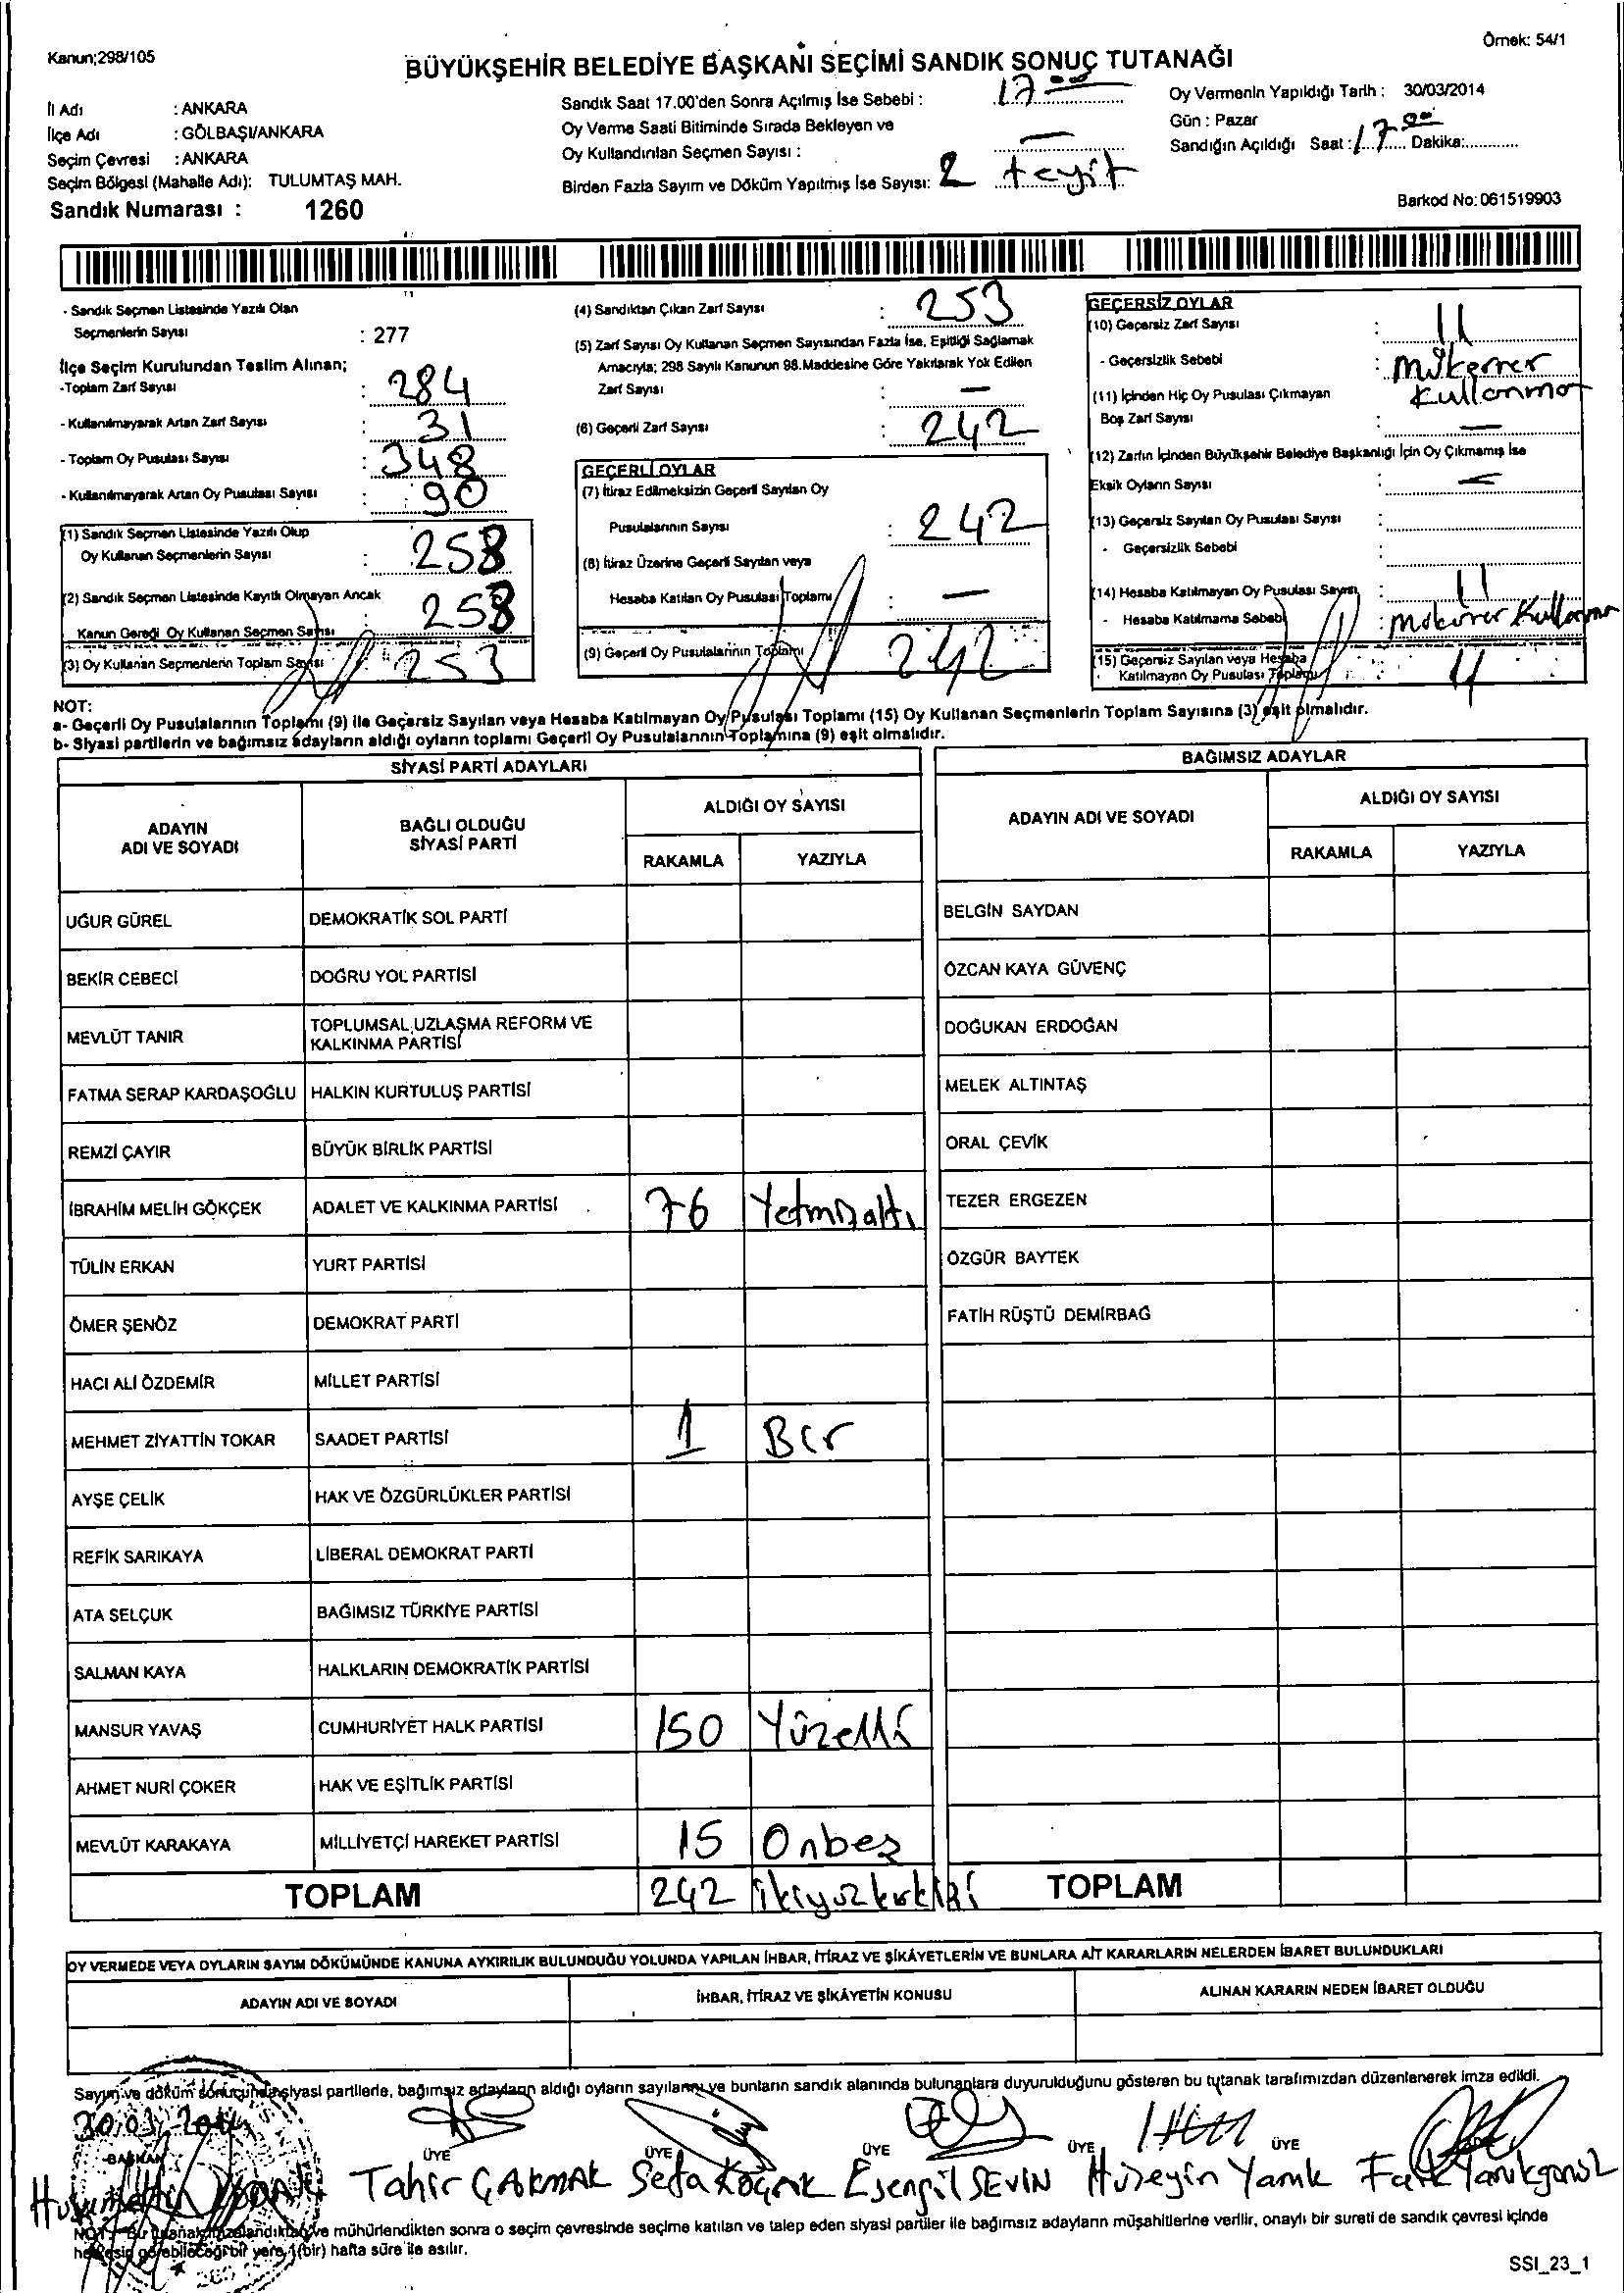 Kanun;298/105
Örnek: 54/1
BÜYÜKŞEHİR BELEDİYE BAŞKANI SEÇİMİ SANDIK SONUÇ TUTANAĞI
İl Adı : ANKARA
İlçe Adı : GÖLBAŞI/ANKARA
Seçim Çevresi : ANKARA
Seçim Bölgesi (Mahalle Adı): TULUMTAŞ MAH.
Sandık Numarası : 1260
Sandık Saat 17.00'den Sonra Açılmış İse Sebebi : 17 00
Oy Verme Saati Bitiminde Sırada Bekleyen ve
Oy Kullandırılan Seçmen Sayısı : —
Birden Fazla Sayım ve Döküm Yapılmış İse Sayısı: 2 teyit
Oy Vermenin Yapıldığı Tarih : 30/03/2014
Gün : Pazar
Sandığın Açıldığı Saat : 17 00 Dakika:
Barkod No: 061519903
- Sandık Seçmen Listesinde Yazılı Olan
Seçmenlerin Sayısı : 277
İlçe Seçim Kurulundan Teslim Alınan;
-Toplam Zarf Sayısı : 284
- Kullanılmayarak Artan Zarf Sayısı : 31
- Toplam Oy Pusulası Sayısı : 348
- Kullanılmayarak Artan Oy Pusulası Sayısı : 90
(1) Sandık Seçmen Listesinde Yazılı Olup
Oy Kullanan Seçmenlerin Sayısı : 258
(2) Sandık Seçmen Listesinde Kayıtlı Olmayan Ancak
Kanun Gereği Oy Kullanan Seçmen Sayısı : 258
(3) Oy Kullanan Seçmenlerin Toplam Sayısı : 253
(4) Sandıktan Çıkan Zarf Sayısı : 253
(5) Zarf Sayısı Oy Kullanan Seçmen Sayısından Fazla İse, Eşitliği Sağlamak
Amacıyla; 298 Sayılı Kanunun 98.Maddesine Göre Yakılarak Yok Edilen
Zarf Sayısı : —
(6) Geçerli Zarf Sayısı : 242
GEÇERLİ OYLAR
(7) İtiraz Edilmeksizin Geçerli Sayılan Oy
Pusulalarının Sayısı : 242
(8) İtiraz Üzerine Geçerli Sayılan veya
Hesaba Katılan Oy Pusulası Toplamı : —
(9) Geçerli Oy Pusulalarının Toplamı 242
GEÇERSİZ OYLAR
(10) Geçersiz Zarf Sayısı : 11
- Geçersizlik Sebebi : mükerrer
kullanma
(11) İçinden Hiç Oy Pusulası Çıkmayan
Boş Zarf Sayısı : —
(12) Zarfın İçinden Büyükşehir Belediye Başkanlığı İçin Oy Çıkmamış İse
Eksik Oyların Sayısı : —
(13) Geçersiz Sayılan Oy Pusulası Sayısı :
- Geçersizlik Sebebi :
(14) Hesaba Katılmayan Oy Pusulası Sayısı : 11
- Hesaba Katılmama Sebebi : mükerrer Kullanma
(15) Geçersiz Sayılan veya Hesaba
Katılmayan Oy Pusulası Toplamı : 11
NOT:
a- Geçerli Oy Pusulalarının Toplamı (9) ile Geçersiz Sayılan veya Hesaba Katılmayan Oy Pusulası Toplamı (15) Oy Kullanan Seçmenlerin Toplam Sayısına (3) eşit olmalıdır.
b- Siyasi partilerin ve bağımsız adayların aldığı oyların toplamı Geçerli Oy Pusulalarının Toplamına (9) eşit olmalıdır.
SİYASİ PARTİ ADAYLARI
ADAYIN ADI VE SOYADI BAĞLI OLDUĞU SİYASİ PARTİ ALDIĞI OY SAYISI
RAKAMLA YAZIYLA
UĞUR GÜREL DEMOKRATİK SOL PARTİ
BEKİR CEBECİ DOĞRU YOL PARTİSİ
MEVLÜT TANIR TOPLUMSAL UZLAŞMA REFORM VE KALKINMA PARTİSİ
FATMA SERAP KARDAŞOĞLU HALKIN KURTULUŞ PARTİSİ
REMZİ ÇAYIR BÜYÜK BİRLİK PARTİSİ
İBRAHİM MELİH GÖKÇEK ADALET VE KALKINMA PARTİSİ 76 Yetmişaltı
TÜLİN ERKAN YURT PARTİSİ
ÖMER ŞENÖZ DEMOKRAT PARTİ
HACI ALİ ÖZDEMİR MİLLET PARTİSİ
MEHMET ZİYATTİN TOKAR SAADET PARTİSİ 1 Bir
AYŞE ÇELİK HAK VE ÖZGÜRLÜKLER PARTİSİ
REFİK SARIKAYA LİBERAL DEMOKRAT PARTİ
ATA SELÇUK BAĞIMSIZ TÜRKİYE PARTİSİ
SALMAN KAYA HALKLARIN DEMOKRATİK PARTİSİ
MANSUR YAVAŞ CUMHURİYET HALK PARTİSİ 150 Yüzelli
AHMET NURİ ÇOKER HAK VE EŞİTLİK PARTİSİ
MEVLÜT KARAKAYA MİLLİYETÇİ HAREKET PARTİSİ 15 Onbeş
TOPLAM 242 ikiyüzkırkiki
BAĞIMSIZ ADAYLAR
ADAYIN ADI VE SOYADI ALDIĞI OY SAYISI
RAKAMLA YAZIYLA
BELGİN SAYDAN
ÖZCAN KAYA GÜVENÇ
DOĞUKAN ERDOĞAN
MELEK ALTINTAŞ
ORAL ÇEVİK
TEZER ERGEZEN
ÖZGÜR BAYTEK
FATİH RÜŞTÜ DEMİRBAĞ
TOPLAM
OY VERMEDE VEYA OYLARIN SAYIM DÖKÜMÜNDE KANUNA AYKIRILIK BULUNDUĞU YOLUNDA YAPILAN İHBAR, İTİRAZ VE ŞİKÂYETLERİN VE BUNLARA AİT KARARLARIN NELERDEN İBARET BULUNDUKLARI
ADAYIN ADI VE SOYADI İHBAR, İTİRAZ VE ŞİKÂYETİN KONUSU ALINAN KARARIN NEDEN İBARET OLDUĞU
Sayım ve döküm sonucunda siyasi partilerle, bağımsız adayların aldığı oyların sayılarını ve bunların sandık alanında bulunanlara duyurulduğunu gösteren bu tutanak tarafımızdan düzenlenerek imza edildi.
30.03.2014
BAŞKAN ÜYE ÜYE ÜYE ÜYE ÜYE
Tahir ÇAKMAK Sefa KOÇAK Esengül SEVİN Hüseyin Yanık
NOT : Bu tutanak imzalandıktan ve mühürlendikten sonra o seçim çevresinde seçime katılan ve talep eden siyasi partiler ile bağımsız adayların müşahitlerine verilir, onaylı bir sureti de sandık çevresi içinde
herkesin görebileceği bir yere 1(bir) hafta süre ile asılır.
SSI_23_1